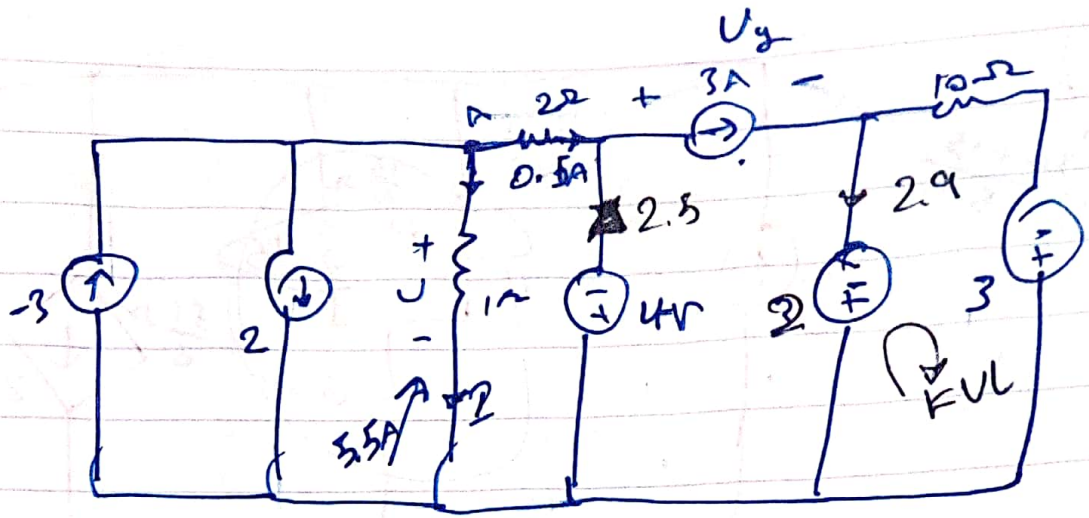 Uy
A 2Ω + 3A - 10Ω
0.5A
2.5
2.9
+
U 1Ω
-
-3
2
- + 4V
2
- +
3
- +
5.5A
I
KVL